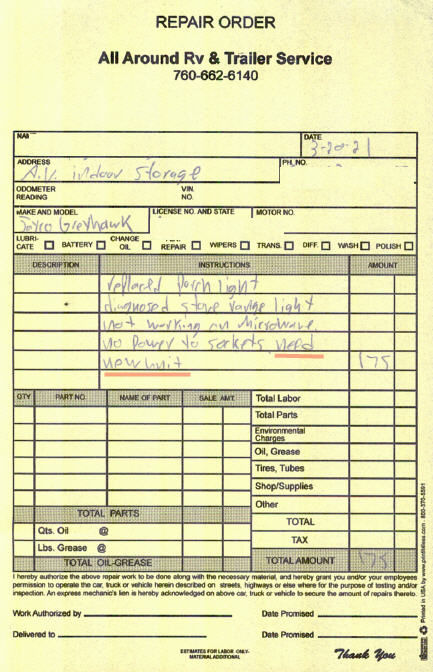 REPAIR ORDER
All Around Rv & Trailer Service
760-662-6140
DATE
3-20-21
ADDRESS
A.V. indoor Storage
PH. NO.
ODOMETER READING
VIN. NO.
MAKE AND MODEL
Jayco Greyhawk
LICENSE NO. AND STATE
MOTOR NO.
LUBRI-CATE BATTERY CHANGE OIL REPAIR WIPERS TRANS. DIFF. WASH POLISH
DESCRIPTION INSTRUCTIONS AMOUNT
replaced Porch light
diagnosed stove range light
not working on Microwave
no power to sockets need
new unit 175
QTY PART NO. NAME OF PART SALE AMT.
Total Labor
Total Parts
Environmental Charges
Oil, Grease
Tires, Tubes
Shop/Supplies
Other
TOTAL PARTS
TOTAL
Qts. Oil @
TAX
Lbs. Grease @
TOTAL OIL-GREASE
TOTAL AMOUNT 175
I hereby authorize the above repair work to be done along with the necessary material, and hereby grant you and/or your employees
permission to operate the car, truck or vehicle herein described on streets, highways or else where for the purpose of testing and/or
inspection. An express mechanic's lien is hereby acknowledged on above car, truck or vehicle to secure the amount of repairs thereto.
Work Authorized by
Date Promised
Delivered to
Date Promised
ESTIMATES FOR LABOR ONLY-
MATERIAL ADDITIONAL
Thank You